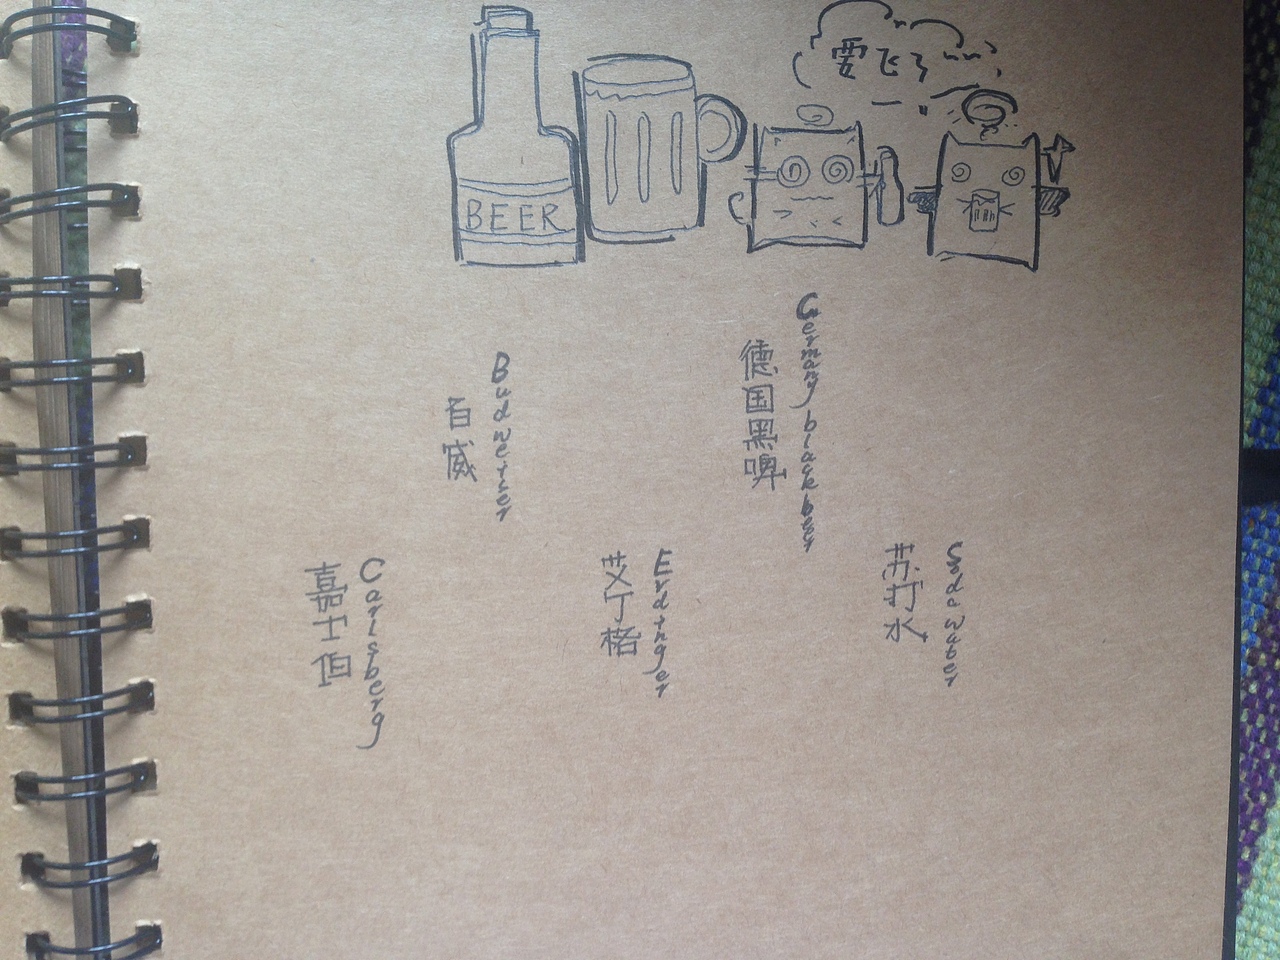 要飞了~~
BEER
Budweiser
百威
Germany black beer
德国黑啤
Carlsberg
嘉士伯
Erdinger
艾丁格
Soda water
苏打水